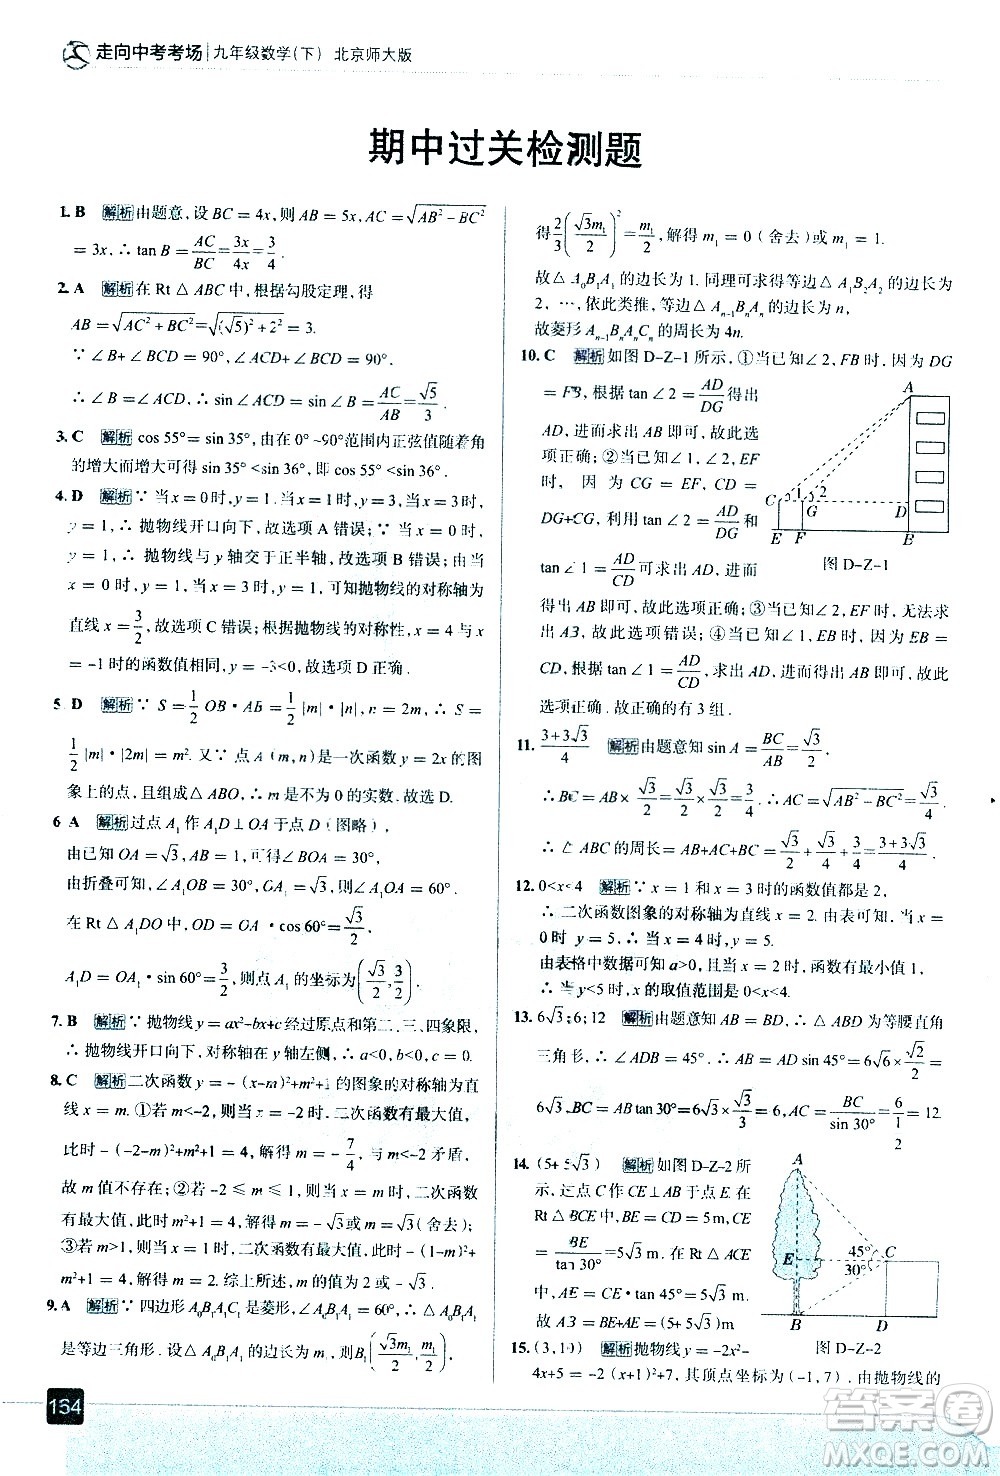 走向中考考场 九年级数学(下) 北京师大版
期中过关检测题
1. B 解析 由题意,设 BC = 4x,则 AB = 5x, AC = √(AB² - BC²)
= 3x, ∴ tan B = AC/BC = 3x/4x = 3/4.
2. A 解析 在 Rt △ ABC 中,根据勾股定理,得
AB = √(AC² + BC²) = √((√5)² + 2²) = 3.
∵ ∠B + ∠BCD = 90°, ∠ACD + ∠BCD = 90°,
∴ ∠B = ∠ACD, ∴ sin ∠ACD = sin ∠B = AC/AB = √5/3.
3. C 解析 cos 55° = sin 35°, 由在 0° ~90°范围内正弦值随着角
的增大而增大可得 sin 35° <sin 36°, 即 cos 55° <sin 36°.
4. D 解析 ∵ 当 x = 0时, y = 1. 当 x = 1时, y = 3, 当 x = 3时,
y = 1, ∴ 抛物线开口向下, 故选项 A 错误; ∵ 当 x = 0 时,
y = 1, ∴ 抛物线与 y 轴交于正半轴, 故选项 B 错误; 由当
x = 0 时, y = 1, 当 x = 3时, y = 1, 可知抛物线的对称轴为
直线 x = 3/2, 故选项 C 错误; 根据抛物线的对称性, 由当 x
= -1 时的函数值 = -3<0, 故选项 D 正确.
5. D 解析 ∵ S = 1/2 OB·AB = 1/2 |m|·|n|, n = 2m, ∴ S =
1/2 |m|·|2m| = m². 又 ∵ 点 A (m, n) 是一次函数 y = 2x的图
象上的点, 且能组成 △ ABO, ∴ m 是不为 0 的实数. 故选 D.
6. A 解析 过点 A₁ 作 A₁D⊥OA 于点 D (图略),
由已知 OA = √3, AB = 1, 可得 ∠BOA = 30°.
由折叠可知, ∠A₁OB = 30°, OA₁ = OA = √3.
在 Rt △ A₁OD 中, OD = OA₁ · cos 60° = √3/2,
A₁D = OA₁·sin 60° = 3/2, 则点 A₁ 的坐标为 (√3/2, 3/2).
7. B 解析 ∵ 抛物线 y = ax²-bx+c 经过原点和第二、三、四象限,
∴ 抛物线开口向下, 对称轴在 y 轴左侧, ∴ a<0, b<0, c=0.
8. C 解析 二次函数 y = -(x-m)²+m²+1 的图象的对称轴为直
线 x = m. ①若 m<-2, 则当 x = -2 时, 二次函数有最大值,
此时 - (-2-m)²+m²+1 = 4, 解得 m = -7/4, 与 m<-2 矛盾,
故 m 值不存在; ②若 -2 ≤ m ≤ 1, 则当 x = m 时, 二次函数
有最大值, 此时, m²+1 = 4, 解得 m = -√3, m = √3 (舍去);
③若 m>1, 则当 x = 1时, 二次函数有最大值, 此时 - (1-m)²+
m²+1 = 4, 解得 m = 2. 综上所述, m = 2或-√3.
9. A 解析 ∵ 四边形 A₀B₁A₁C₁ 是菱形, ∠A₀B₁A₁ = 60°, ∴ △ A₀B₁A₁
是等边三角形. 设 △ A₀B₁A₁ 的边长为 m₁, 则 B₁(√3m₁/2, m₁/2),
164
得 2/3(√3m₁/2)² = m₁/2, 解得 m₁ = 0 (舍去) 或 m₁ = 1.
故 △ A₀B₁A₁ 的边长为 1. 同理可求得等边 △ A₁B₂A₂ 的边长为
2, …, 依此类推, 等边△ Aₙ₋₁BₙAₙ 的边长为 n,
故菱形 Aₙ₋₁BₙAₙCₙ 的周长为 4n.
10. C 解析 如图 D-Z-1 所示, ①当已知∠2, FB 时, 因为 DG
= FB, 根据 tan ∠2 = AD/DG 得出
AD, 进而求出 AB 即可, 故选项
正确; ②当已知∠1, ∠2, EF
时, 因为 CG = EF, CD =
DG+CG, 利用 tan ∠2 = AD/DG 和
tan ∠1 = AD/CD 可求出 AD, 进而
得出 AB 即可, 故此选项正确; ③当已知∠2, EF 时, 无法求
出 AB, 故此选项错误; ④当已知∠1, EB 时, 因为 EB =
CD, 根据 tan ∠1 = AD/CD, 求出 AD, 进而得出 AB 即可, 故此
选项正确. 故正确的有 3 组.
A
C 1 2
G D
E F B
图 D-Z-1
11. (3+3√3)/4 解析 由题意知 sin A = BC/AB = √3/2,
∴ BC = AB × √3/2 = √3/2 × √3/2 = 3/4, ∴ AC = √(AB² - BC²) = √3/4,
∴ △ ABC 的周长 = AC + AB + BC = √3/4 + √3/2 + 3/4 = (3+3√3)/4.
12. 0<x<4 解析 ∵ x = 1 和 x = 3 时的函数值都是 2,
∴ 二次函数图象的对称轴为直线 x = 2. 由表可知, 当 x =
0 时, y = 5, ∴ 当 x = 4 时, y = 5.
由表格中数据可知 a>0, 函数有最小值 1,
∴ 当 y<5 时, x 的取值范围是 0<x<4.
13. 6√3; 6; 12 解析 由题意知 AB = BD, ∴ △ ABD 为等腰直角
三角形, ∴ ∠ADB = 45°, ∴ AB = AD sin 45° = 6√6 × √2/2 =
6√3, BC = AB tan 30° = 6√3 × √3/3 = 6, AC = BC/sin 30° = 6/(1/2) = 12.
14. (5+5√3) 解析 如图 D-Z-2 所
示, 过点 C 作 CE⊥AB 于点 E. 在
Rt △ BCE 中, BE = CD = 5 m, CE
= BE/tan 30° = 5√3 m. 在 Rt △ ACE
中, AE = CE·tan 45° = 5√3 m,
故 AB = BE+AE = (5+5√3) m
A
E 45° C
30°
B D
图 D-Z-2
15. (3, 10) 解析 抛物线 y = -2x²-
4x+5 = -2 (x+1)²+7, 其顶点坐标为 (-1, 7). 由抛物线的
答案圈
MXQE.COM